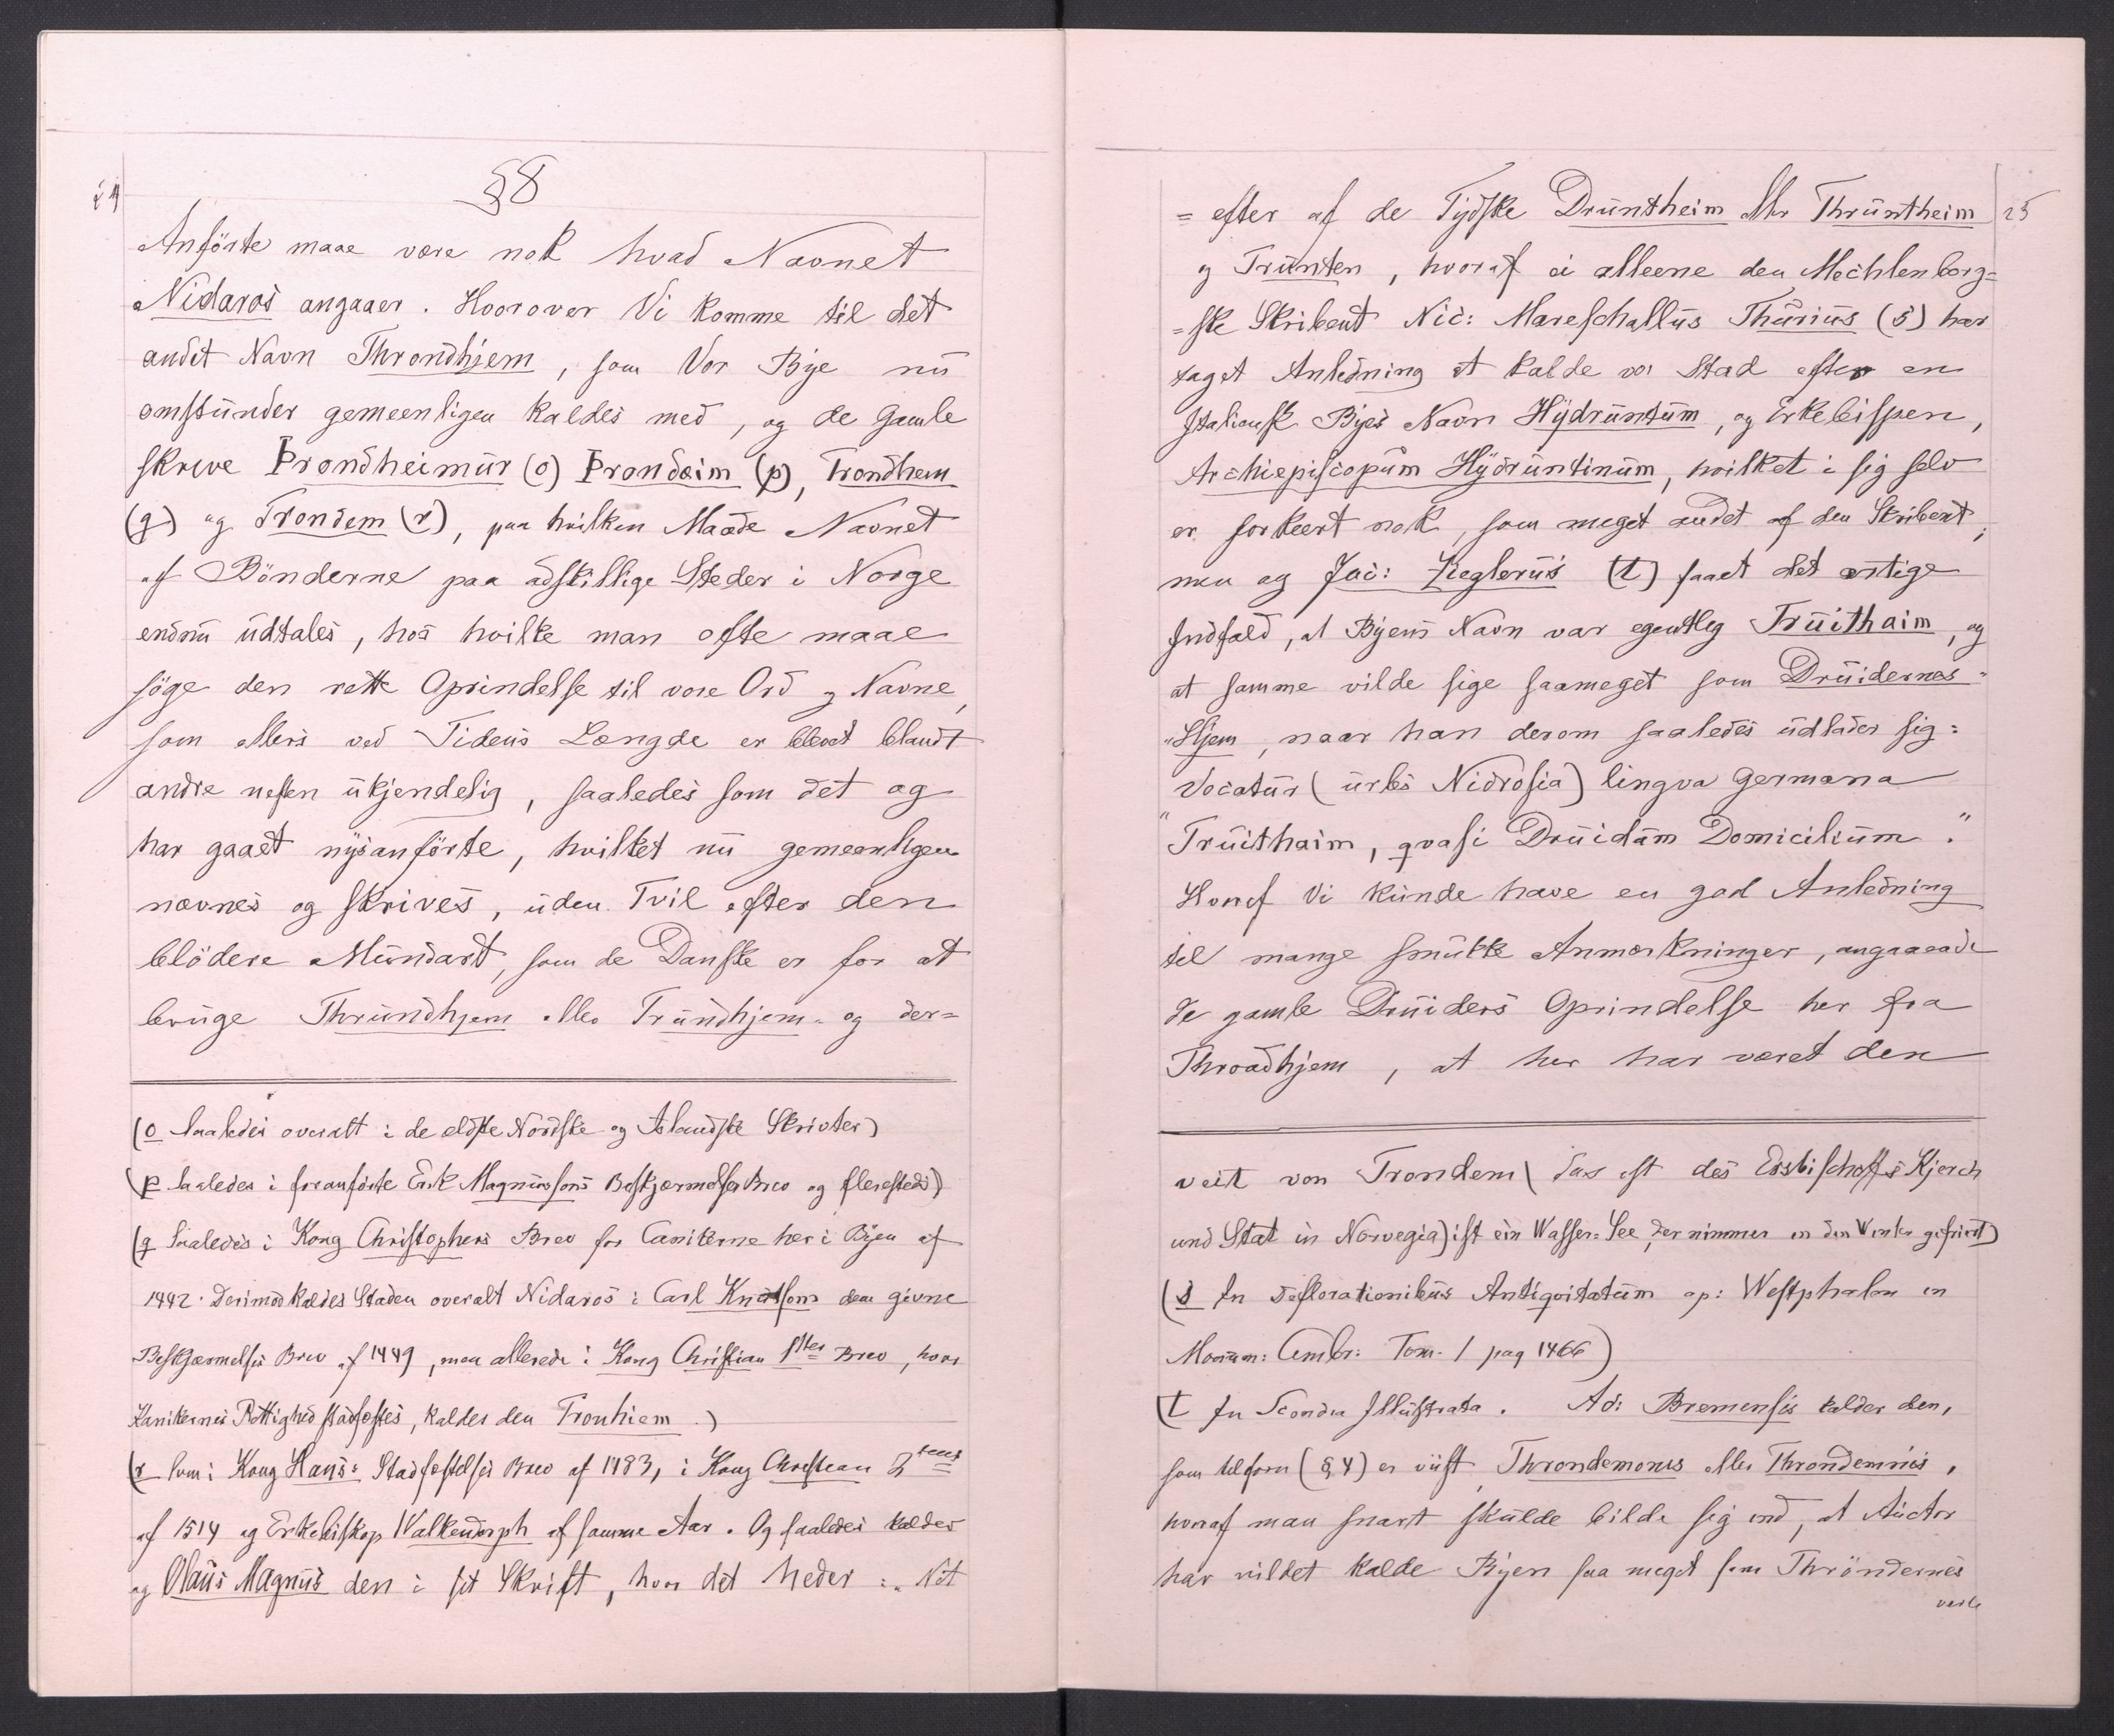 24
§8
Anförte maae være nok hvad Navnet
Nidaros angaaer. Hvorover Vi komme til det
andet Navn Throndhjem, som Vor Bye nu
omstunder gemeenligen kaldes med, og de Gamle
skreve Þrondheimur (o) Þrondæim (p), Trondhem
(q) og Trondem (r), paa hvilken Maade Navnet
af Bönderne paa adskillige Steder i Norge
endnu udtales, hos hvilke man ofte maae
söge den rette Oprindelse til vore Ord og Navne,
som ellers ved Tidens Længde er blevet blandt
andre nesten ukjendelig, saaledes som det og
har gaaet nysanförte, hvilket nu gemeenligen
nævnes og skrives, uden Tvil efter den
blödere Mundart, som de Danske er for at
bruge Thrundhjem eller Trundhjem og der=
(o Saaledes overalt i de ældste Nordske og Islandske Skrivter)
(p Saaledes i foranförte Erik Magnussöns Beskjærmelses Brev og flerestedes)
(q Saaledes i Kong Christophers Brev for Canikerne her i Byen af
1442. Derimod kaldes Staden overalt Nidaros i Carl Knutsons den givne
Beskjærmelses Brev af 1449, men allerede i Kong Christian 1stes Brev, hvor
Kanikernes Rettighed stadfæstes, kaldes den Tronhiem.)
(r Som i Kong Hans's Stadfæstelses Brev af 1483, i Kong Christian 2dens
af 1514 og Erkebiskop Walkendorph af samme Aar. Og saaledes kalder
og Olaus Magnus den i sit Skrift, hvor det heder: „Nöt
= efter af de Tydske Druntheim eller Thruntheim 25
og Trunten, hvoraf ei alleene den Mechlenborg=
=ske Skribent Nic: Mareschallus Thurius (s) har
taget Anledning at kalde vor Stad efter en
Italiensk Byes Navn Hydruntum, og Erkebispen,
Archiepiscopum Hydruntinum, hvilket i sig selv
er forkeert nok, som meget andet af den Skribent;
men og Jac: Zieglerus (t) faaet det artige
Indfald, at Byens Navn var egentlig Truithaim, og
at samme vilde sige saameget som Druidernes=
„Hjem, naar han derom saaledes udlader sig:
Vocatur (urbs Nidrosia) lingva Germana
"Truithaim, qvasi Druidum Domicilium."
Hvoraf Vi kunde have en god Anledning
til mange smukke Anmærkninger, angaaende
de gamle Druiders Oprindelse her fra
Throndhjem, at her har været den
veit von Trondem (das ist des Ersbischoffs Kjerch
und Stat in Norvegia) ist ein Wasser=See, der nimmer in den Winter gefriert)
(s In deflorationibus Antiqvitatum ap: Westphalen in
Monum: Cimbr: Tom. 1 pag 1466)
(t In Scondia Illustrata. Ad: Bremensis kalder den,
som tilforn (§4) er viist, Throndemonis eller Throndemnis,
hvoraf man snart skulde bilde sig ind, at Auctor
har villet kalde Byen saa meget som Thröndernes